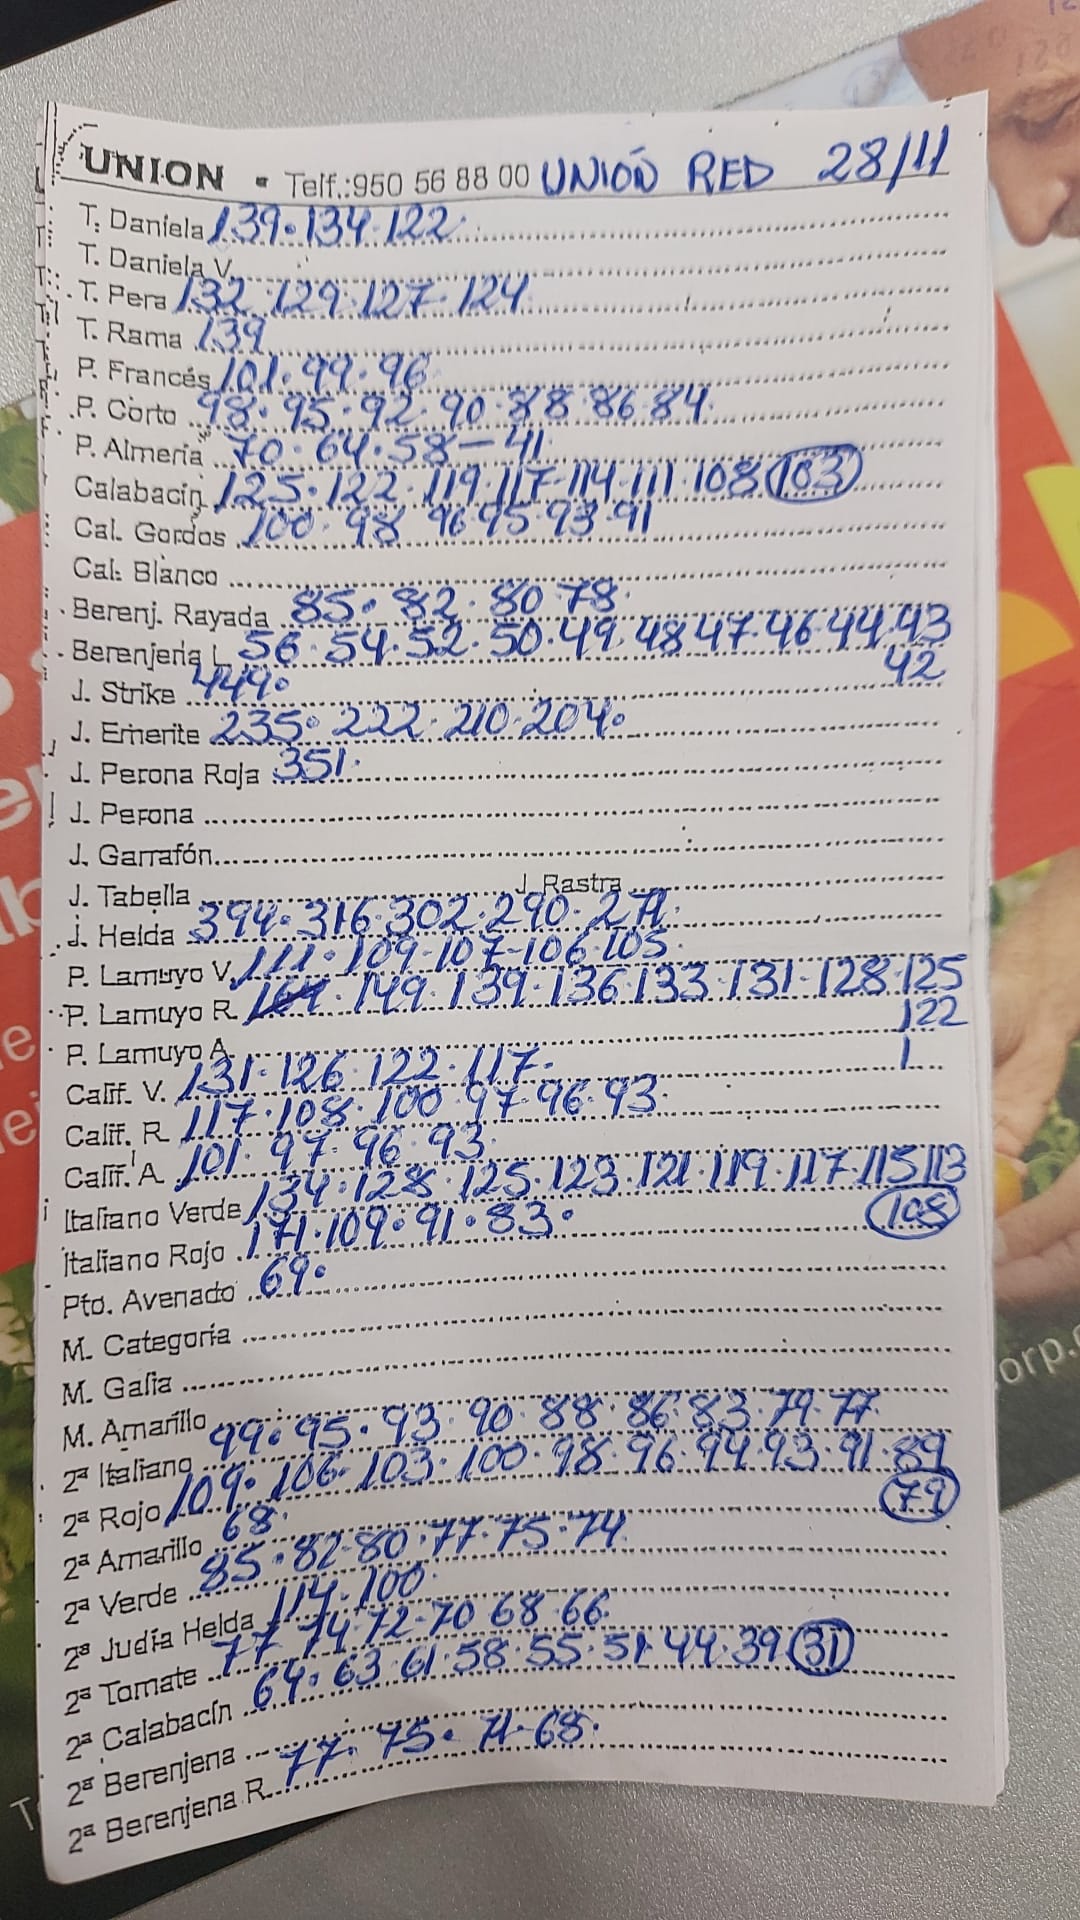 UNION - Telf.:950 56 88 00 UNIÓN RED 28/11
T. Daniela 139.134.122.
T. Daniela V.
T. Pera 132.129.127.124
T. Rama 139
P. Francés 101.99.96
P. Corto 98.95.92.90.88.86.84.
P. Almería 70.64.58-41.
Calabacín 125.122.119.117-114.111.108 103
Cal. Gordos 100.98 96.95.93.91
Cal. Blanco
Berenj. Rayada 85.82.80.78.
Berenjena L 56.54.52.50.49.48.47.46.44.43
42
J. Strike 449.
J. Emerite 235.222.210.204.
J. Perona Roja 351.
J. Perona
J. Garrafón
J. Tabella J. Rastra
J. Helda 394.316.302.290.271.
P. Lamuyo V. 111.109.107-106.105.
P. Lamuyo R. 149.139.136.133.131.128.125
122
P. Lamuyo A.
Calif. V. 131.126.122.117.
Calif. R 117.108.100.97.96.93.
Calif. A. 101.97.96.93.
Italiano Verde 134.128.125.123.121.119.117.115.113
108
Italiano Rojo 171.109.91.83.
Pto. Avenado 69.
M. Categoria
M. Galia
M. Amarillo
2ª Italiano 99.95.93.90.88.86.83.79.77.
2ª Rojo 109.106.103.100.98.96.94.93.91.89
79
2ª Amarillo 68.
2ª Verde 85.82-80.77.75.74.
2ª Judía Helda 114.100.
2ª Tomate 77 74.72-70 68.66.
2ª Calabacín 64.63.61.58.55.51.44.39 31
2ª Berenjena
2ª Berenjena R. 77.75.71.68.